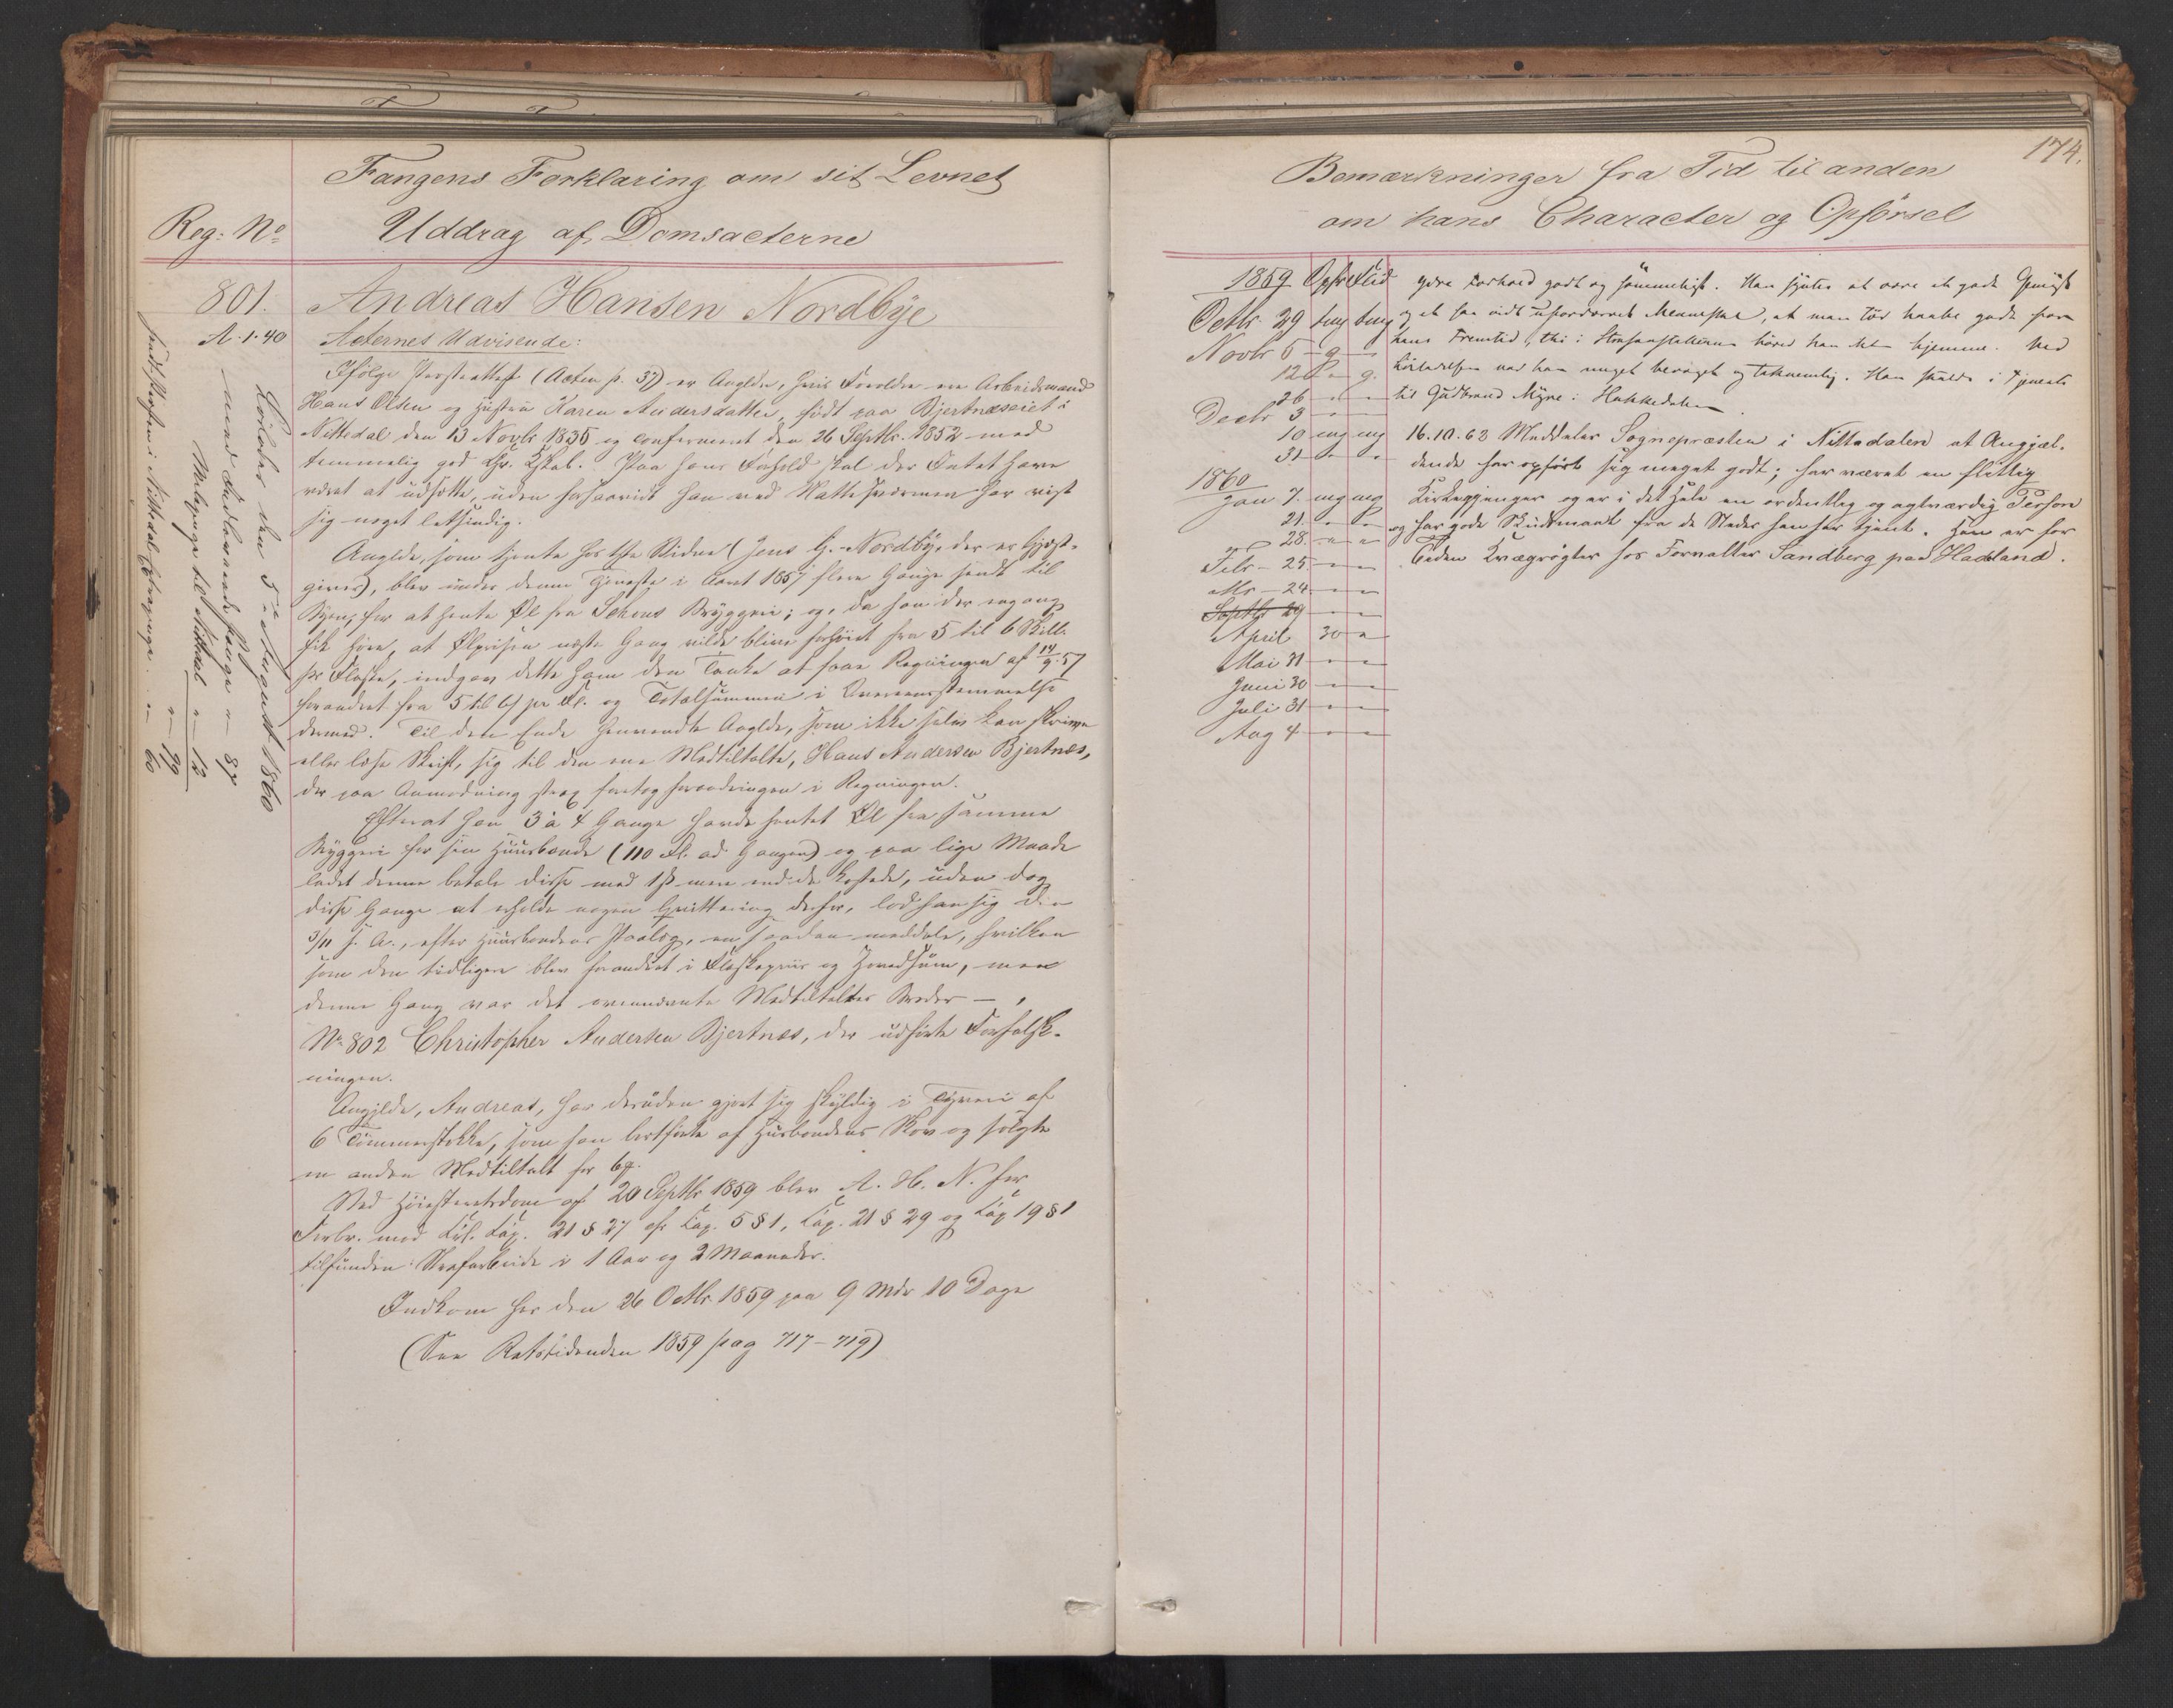 Fangens Forklaring om sit Levnet
Reg: No Uddrag af Domsacterne
801. Andreas Hansen Nordbye
A.1.40 Acternes Udvisende:
Ifølge Præsteattest (Acten p. 37) er Anglde, hvis Forældre ere Arbeidsmand
Hans Olsen og Hustru Karen Andersdatter, født paa Bjertnæseiet i
Nittedal den 13 Novbr 1835 og confirmeret den 26 Septbr. 1852 med
temmelig god Chr. Kskab. Paa hans Forhold skal der Intet have
været at udsætte, uden forsaavidt han ved Nattesværmen har vist
sig noget letsindig.
Anglde, som tjente hos 1ste Vidne (Jens G. Nordby, der er Gjæst-
giver), blev under denne Tjeneste i Aaret 1857 flere Gange sendt til
Byen, for at hente Øl fra Schous Bryggeri; og, da han der engang
fik høre, at Ølprisen næste Gang vilde blive forhøiet fra 5 til 6 Skill.
pr Flaske, indgav dette ham den Tanke at faae Regningen af 14/9 57
forandret fra 5 til 6 pr Fl. og Totalsummen i Overeensstemmelse
dermed. Til den Ende henvendte Anglde, som ikke selv kan skrive
eller læse Skrift, sig til den ene Medtiltalte, Hans Andersen Bjertnæs,
der paa Anmodning strax foretog Forandringen i Regningen.
Efterat han 3 à 4 Gange havde hentet Øl fra samme
Bryggeri for sin Huusbonde (110 Fl. ad Gangen) og paa lige Maade
ladet denne betale disse med 1ß mere end de kostede, uden dog
disse Gange at erholde nogen Qvittering derfor, lod han sig den
3/11 s. A., efter Huusbondens Paalæg, en saadan meddele, hvilken
som den tidligere blev forandret i Flaskepriis og Hovedsum, men
denne Gang var det ovennævnte Medtiltaltes Broder — ,
No 802 Christopher Andersen Bjertnæs, der udførte Forfalsk-
ningen.
Angjldt, Andreas, har desuden gjort sig skyldig i Tyveri af
6 Tømmerstokke, som han bortførte af Husbondens Skov og solgte
en anden Medtiltalt for
Ved Høiesteretsdom af 20 Septbr 1859 blev A. H. N. for
Forbr. mod Crl. Cap. 21 § 27 cfr Cap. 5 § 1, Cap. 21 § 29 og Cap 19 § 1
tilfunden Strafarbeide i 1 Aar og 2 Maaneder.
Indkom her den 26 Octbr 1859 paa 9 Mdr 10 Dage
(See Retstidenden 1859 pag 717-719)
Løslades den 5te August 1860
med Indlevnede Penge " 87
Milepenge til Nittedal " 12
" 99
174.
Bemærkninger fra Tid til anden
om hans Character og Opførsel
1859 Opfør Flid
Octbr 29 tmg tmg
Novbr 5 – g –
12 g.
26 " "
Decbr 3 –
10 mg mg
31 " "
1860
Jan 7. mg mg
21. " "
28. " "
Febr – 25 " "
Mr – 24 " "
Septbr 29 " "
April 30 "
Mai 31 " "
Juni 30 " "
Juli 31 " "
Aug 4 " "
ydre Forhold godt og sømmeligt. Han synes at være et godt Gemyt
og et saa vidt ufordærvet Menneske, at man tør haabe godt for
hans Fremtid, thi i Strafanstalterne hører han ikke hjemme. Ved
Løsladelsen var han meget bevæget og taknemlig. Han skulde i Tjeneste
til Gudbrand Myre i Hakkedalen.
16.10.63 Meddeler Sognepræsten i Nittedalen at Angjæl-
dende har opført sig meget godt; har været en flittig
Kirkegjænger og er i det Hele en ordentlig og agtværdig Person
og har gode Skudsmaal fra de Steder han har tjent. Han er for
Tiden Kvægrøgter hos Forvalter Sandberg paa Hadeland.